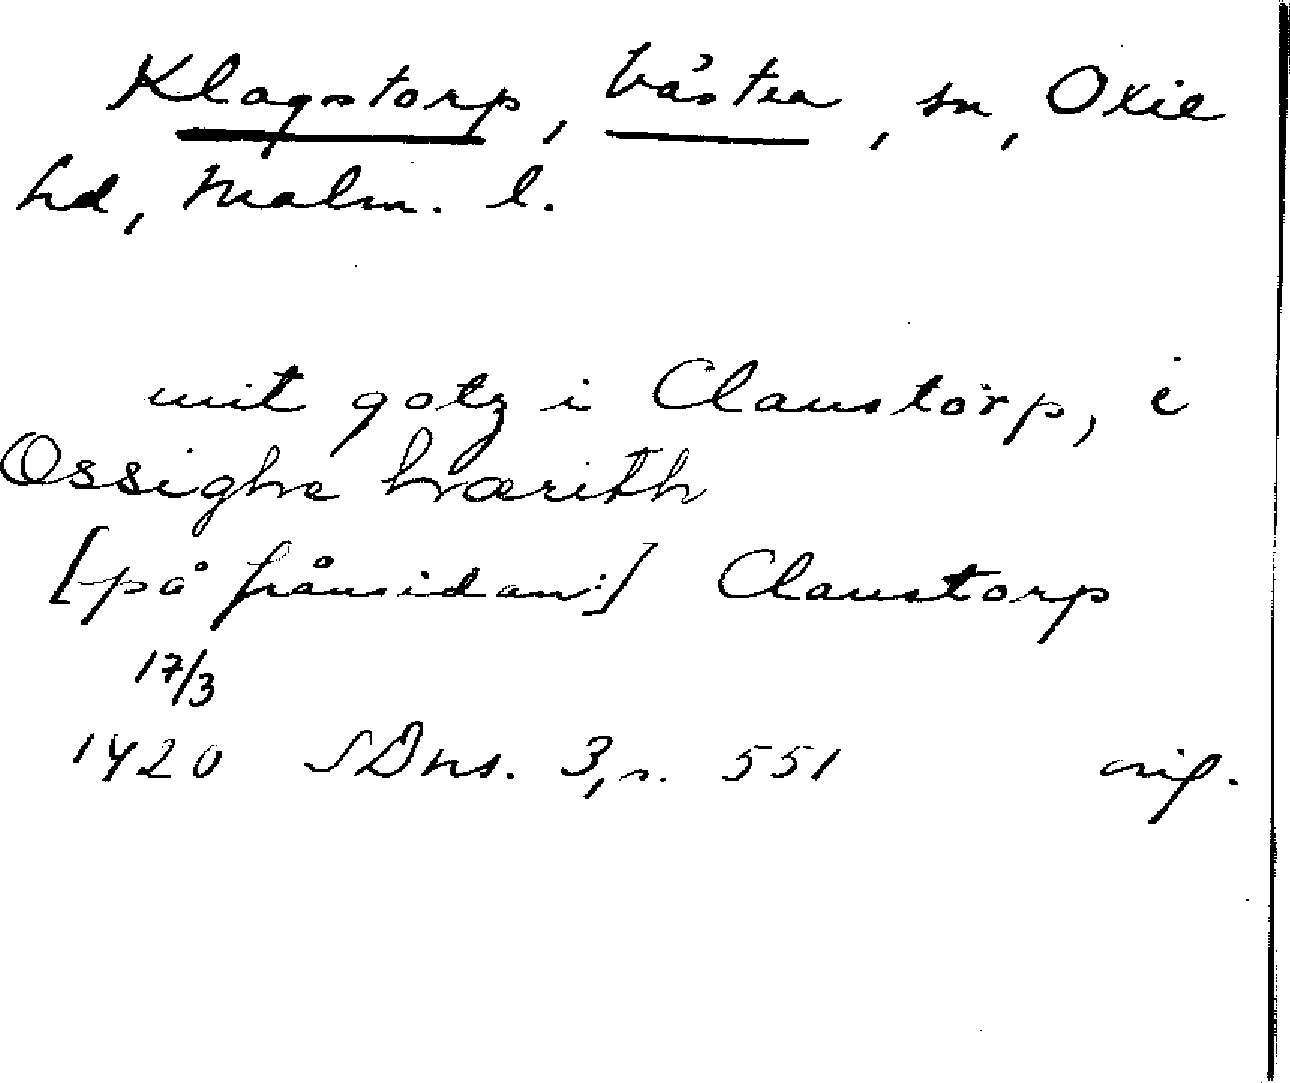 Klagstorp, Västra, sn, Oxie
hd, Malm. l.
mit gotz i Claustorp, i
Ossighe hærith
[på frånsidan:] Claustorp
17/3
1420 SDns. 3, s. 551 orig.